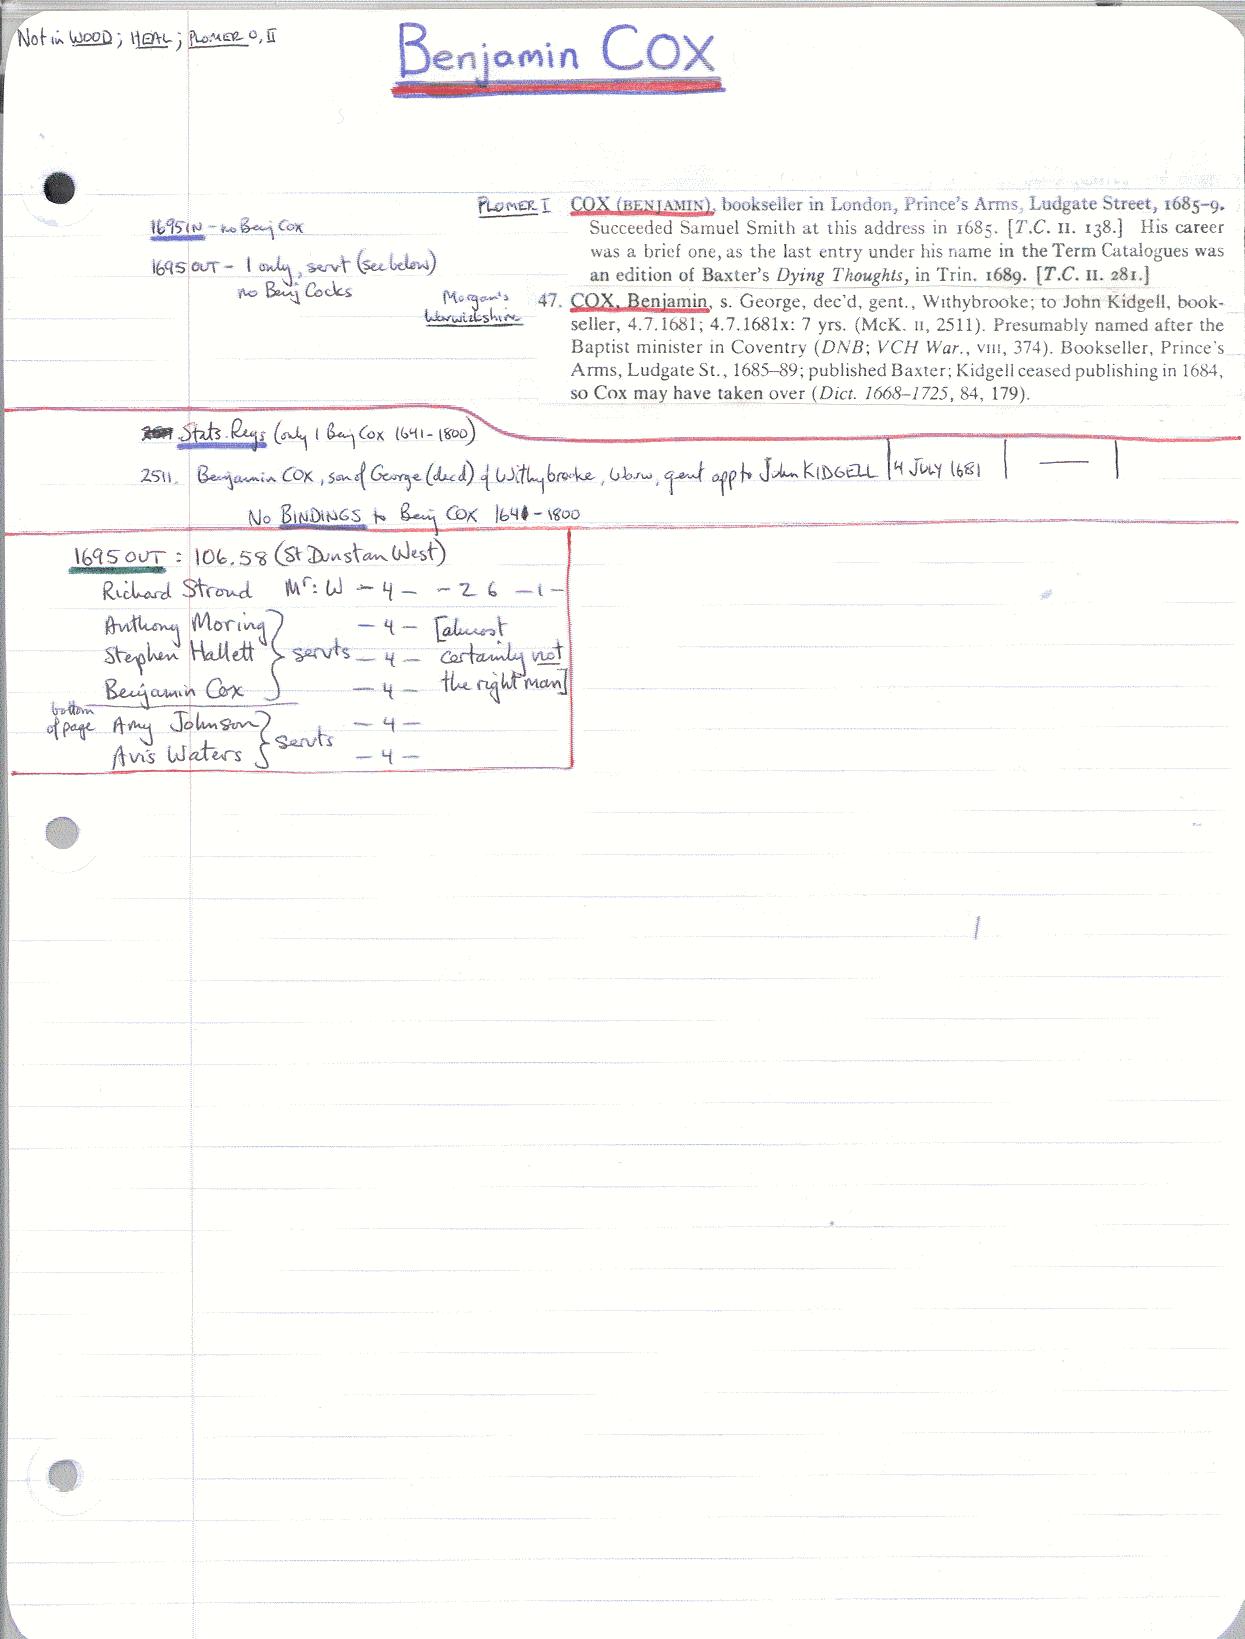 Not in WOOD; HEAL; PLOMER O, II
Benjamin COX
PLOMER I
COX (BENJAMIN), bookseller in London, Prince's Arms, Ludgate Street, 1685-9.
Succeeded Samuel Smith at this address in 1685. [T.C. II. 138.] His career
was a brief one, as the last entry under his name in the Term Catalogues was
an edition of Baxter's Dying Thoughts, in Trin. 1689. [T.C. II. 281.]
1695 IN - no Benj Cox
1695 OUT - 1 only, servt (see below)
no Benj Cocks
Morgan's
Warwickshire
47. COX, Benjamin, s. George, dec'd, gent., Withybrooke; to John Kidgell, book-
seller, 4.7.1681; 4.7.1681x: 7 yrs. (McK. II, 2511). Presumably named after the
Baptist minister in Coventry (DNB; VCH War., VIII, 374). Bookseller, Prince's
Arms, Ludgate St., 1685–89; published Baxter; Kidgell ceased publishing in 1684,
so Cox may have taken over (Dict. 1668–1725, 84, 179).
Stats. Regs (only 1 Benj Cox 1641-1800)
2511. Benjamin COX, son of George (decd) of Withybrooke, Warw, gent app to John KIDGELL | 4 JULY 1681 | — |
No BINDINGS to Benj COX 1641-1800
1695 OUT : 106.58 (St Dunstan West)
Richard Stroud Mr: W - 4 - - 2 6 - 1 -
Anthony Moring } - 4 - [almost
Stephen Hallett } servts - 4 - certainly not
Benjamin Cox } - 4 - the right man]
bottom
of page Amy Johnson } - 4 -
Avis Waters } servts - 4 -